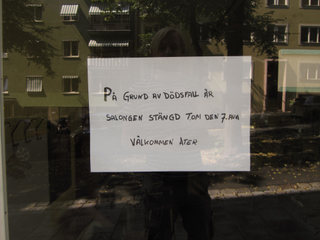 PÅ GRUND AV DÖDSFALL ÄR
SALONGEN STÄNGD TOM DEN 7. AUG
VÄLKOMMEN ÅTER